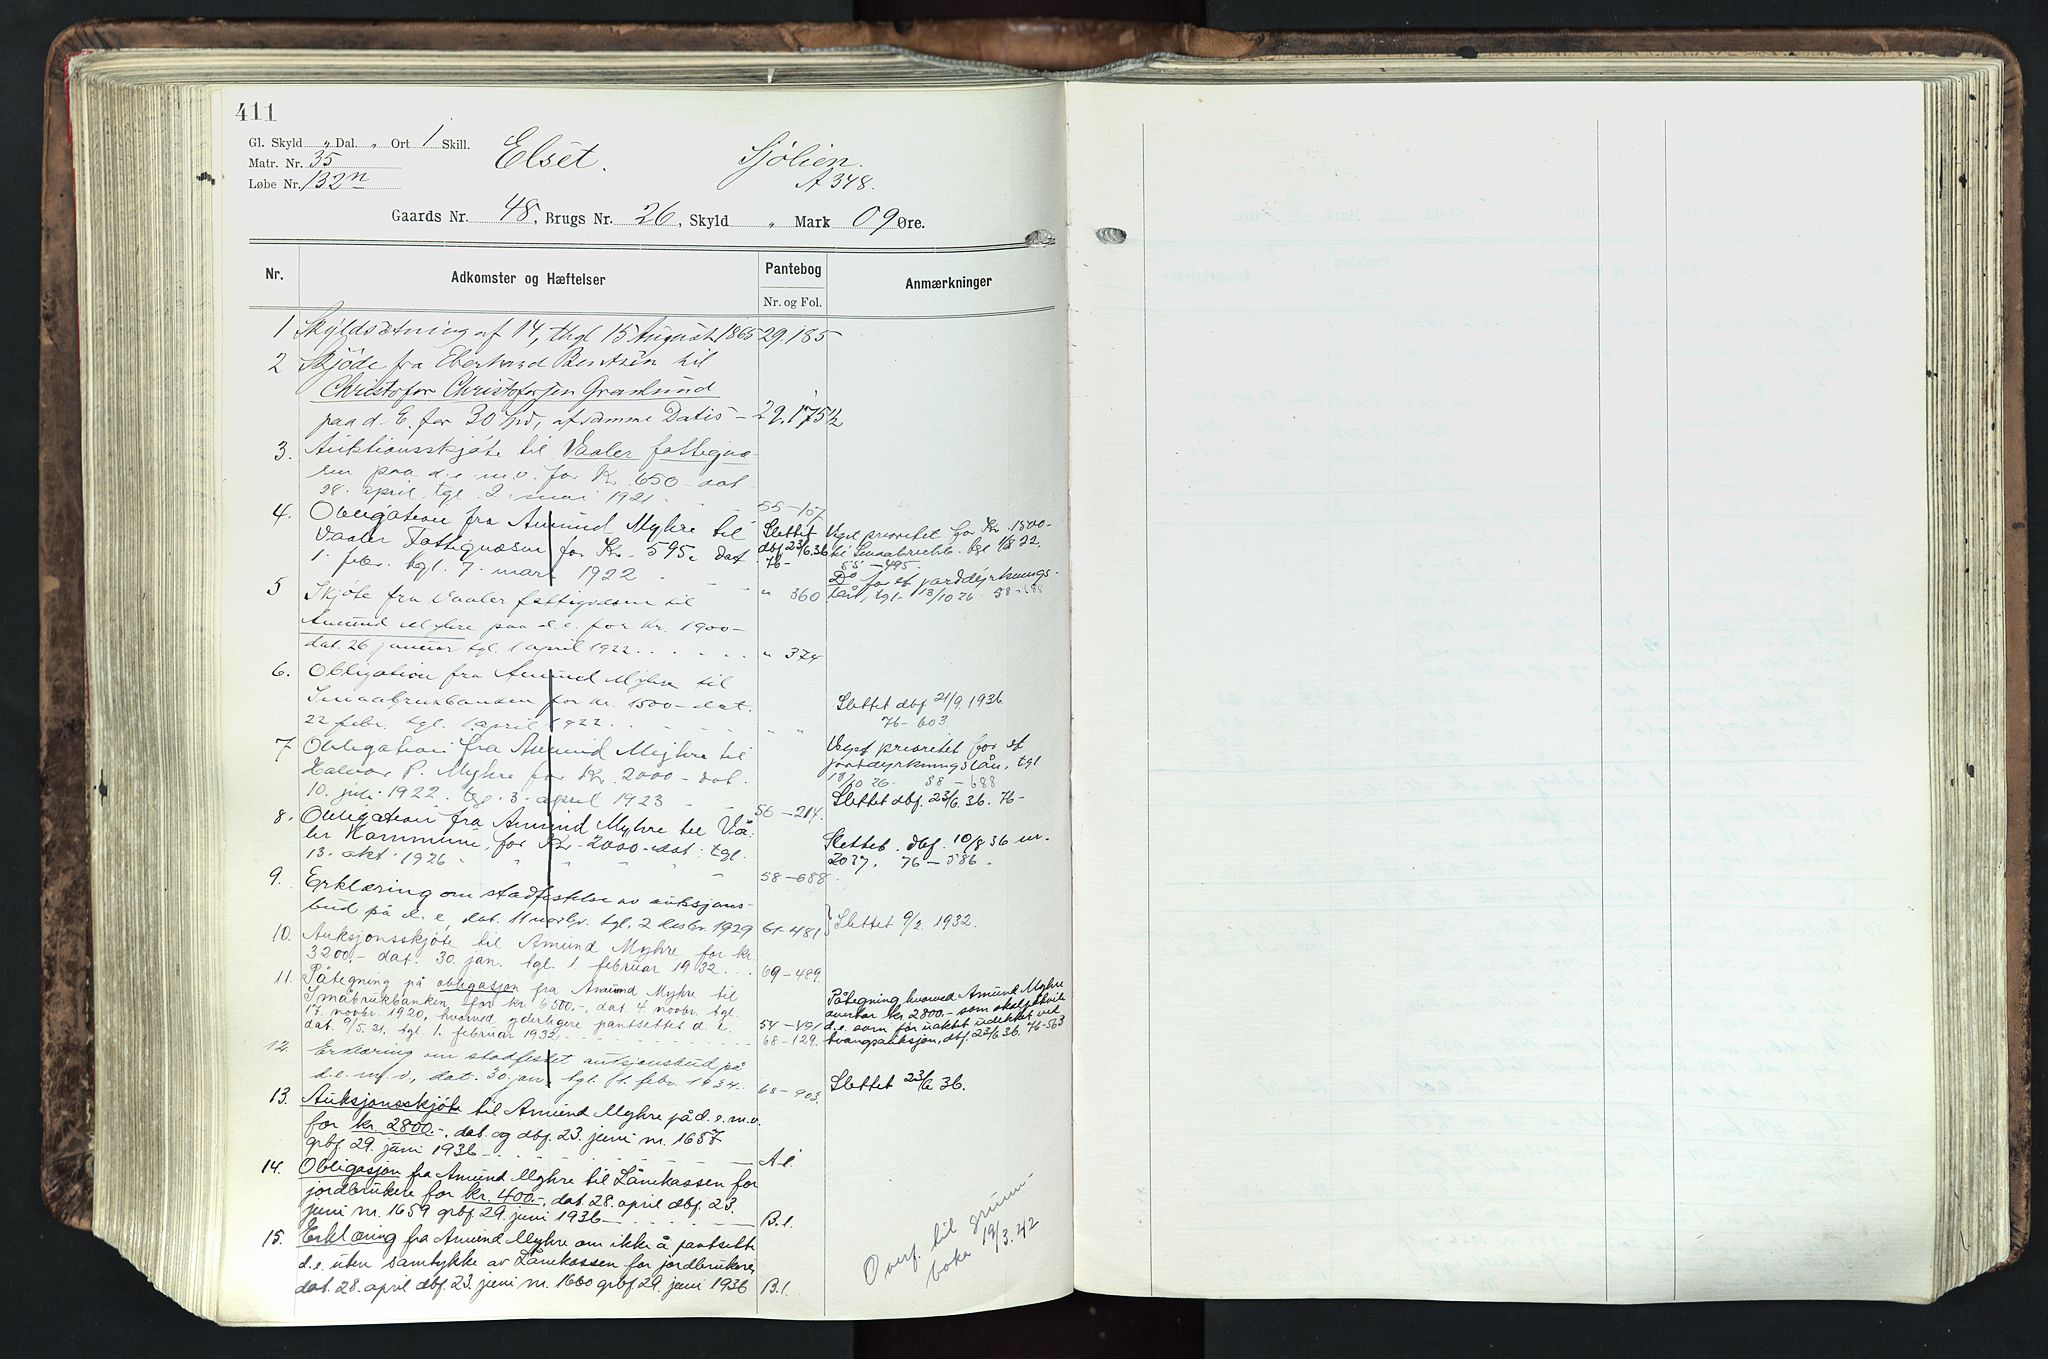 411
Gl. Skyld „ Dal. „ Ort 1 Skill.
Matr. Nr. 35
Løbe Nr. 132n
Elset.
Sjølien.
A 348.
Gaards Nr. 48, Brugs Nr. 26, Skyld „ Mark 09 Øre.
Nr.
Adkomster og Hæftelser
Pantebog
Nr. og Fol.
Anmærkninger
1 Skyldsætning af 14, thgl 15 August 1865 29.185
2 Skjøde fra Eberhard Bentsen til
Christofer Christofersen Granlund
paa d. E. for 30 Spd, af samme Datis - 29.175½
3. Auktionsskjøte til Vaaler fattigvæ-
sen paa d.e. m.v. for Kr. 650 - dat
28. april tgl. 2. mai 1921 55-107
4. Obligation fra Amund Myhre til
Vaaler Fattigvæsen for Kr. 595,- dat
1. febr. tgl. 7. mars 1922 " 360
Slettet
dbf 23/6.36
76-
Veget prioritet for Kr. 1500-
til Smaabrukb. tgl 1/8 22.
55 - 495.
Do for et jorddyrknings-
lån, tgl. 13/10 26 58-688
5 Skjøte fra Vaaler fattigvæsen til
Amund Myhre paa d.e. for Kr. 1900-
dat. 26 januar tgl. 1 april 1922 " 374
6. Obligation fra Amund Myhre til
Smaabrukbanken for Kr. 1500- dat.
22 febr. tgl. 1 april 1922 " "
Slettet dbf 21/9 1936
76-603
7 Obligation fra Amund Myhre til
Halvor P. Myhre for Kr. 2000- dat.
10. juli 1922. tgl. 3. april 1923 56-214.
Veget prioritet for et
jorddyrkningslån, tgl
13/10 26. 58-688
Slettet dbf. 23/6.36. 76-
8. Obligation fra Amund Myhre til Vå-
ler Kommune, for Kr 2000- dat. tgl.
13. okt. 1926 58-688
Slettet. dbf. 10/8 36 nr.
2037. 76-586
9. Erklæring om stadfestelse av auksjons-
bud på d. e. dat. 11 novbr. tgl. 2 desbr. 1929 61-481
} Slettet 9/2 1932.
10. Auksjonsskjøte til Amund Myhre for kr.
3200,- dat. 30. jan. tgl. 1. februar 1932. 69-489
11. Påtegning på obligasjon fra Amund Myhre til
Småbrukbanken for kr. 6500,- dat. 4. novbr. tgl.
17. novbr. 1920, hvorved yderligere pantsettet d. e.
dat. 9/5. 31. tgl. 1. februar 1932 54-491
68-129.
Påtegning hvorved Amund Myhre
overtar kr. 2800.- som skal påhvile
d.e. som før uaktet udekket ved
tvangsauksjon, dbf. 23/6.36. 76-563
12. Erklæring om stadfestet auksjonsbud på
d.e. m.v, dat. 30 jan. tgl. 11. febr. 1934. 68-903.
Slettet 23/6 36.
13. Auksjonsskjøte til Amund Myhre på d.e. m.v.
for kr. 2800.-, dat. og dbf. 23. juni nr. 1657
grbf 29. juni 1936 A 1.
14. Obligasjon fra Amund Myhre til Lånekassen for
jordbrukere for kr. 400.-, dat. 28. april dbf. 23.
juni nr. 1659 grbf 29. juni 1936 B.1.
15. Erklæring fra Amund Myhre om ikke å pantsette
d.e. uten samtykke av Lånekassen for jordbrukere,
dat. 28. april dbf. 23. juni nr. 1660 grbf. 29. juni 1936 B.1.
Overf. til grunn-
boka 19/3. 42